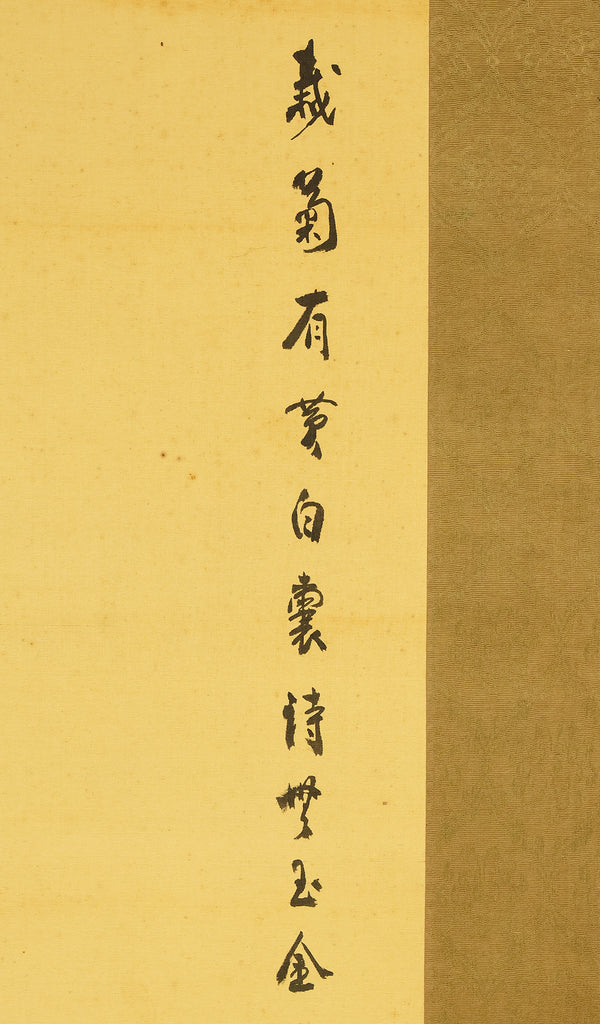 栽菊有黄白囊詩無玉金